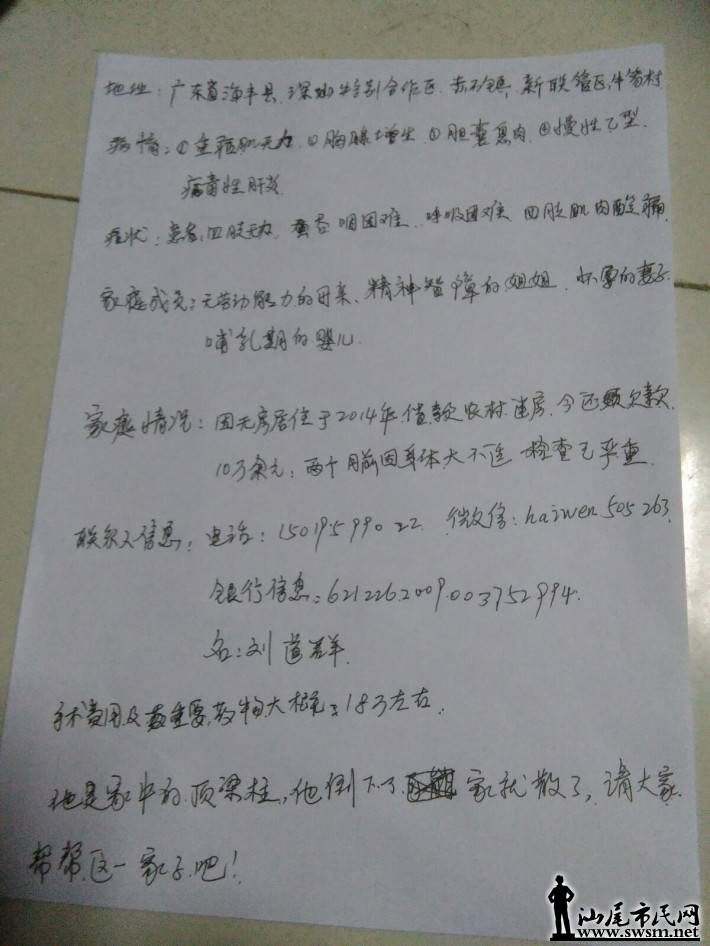 地址：广东省海丰县，深汕特别合作区，赤石镇，新联管区，牛筜村
病情：①重症肌无力，②胸腺增生，③胆囊息肉，④慢性乙型
病毒性肝炎
症状：患者，四肢无力，吞咽困难，呼吸困难，四肢肌肉酸痛，
家庭成员：无劳动能力的母亲、精神智障的姐姐、怀孕的妻子
哺乳期的婴儿.
家庭情况：因无房居住于2014年借款农村建房，今还
欠款
10万余元；两个月前因身体大不适 检查已严重
联系人信息：电话：15019599022 微信：haiwen505263
银行信息：6212262009003752994
名：刘道群
手术费用及重要药物大概：18万左右.
他是家中的顶梁柱，他倒下了 家就散了，请大家
帮帮这一家子吧！
汕尾市民网
www.swsm.net